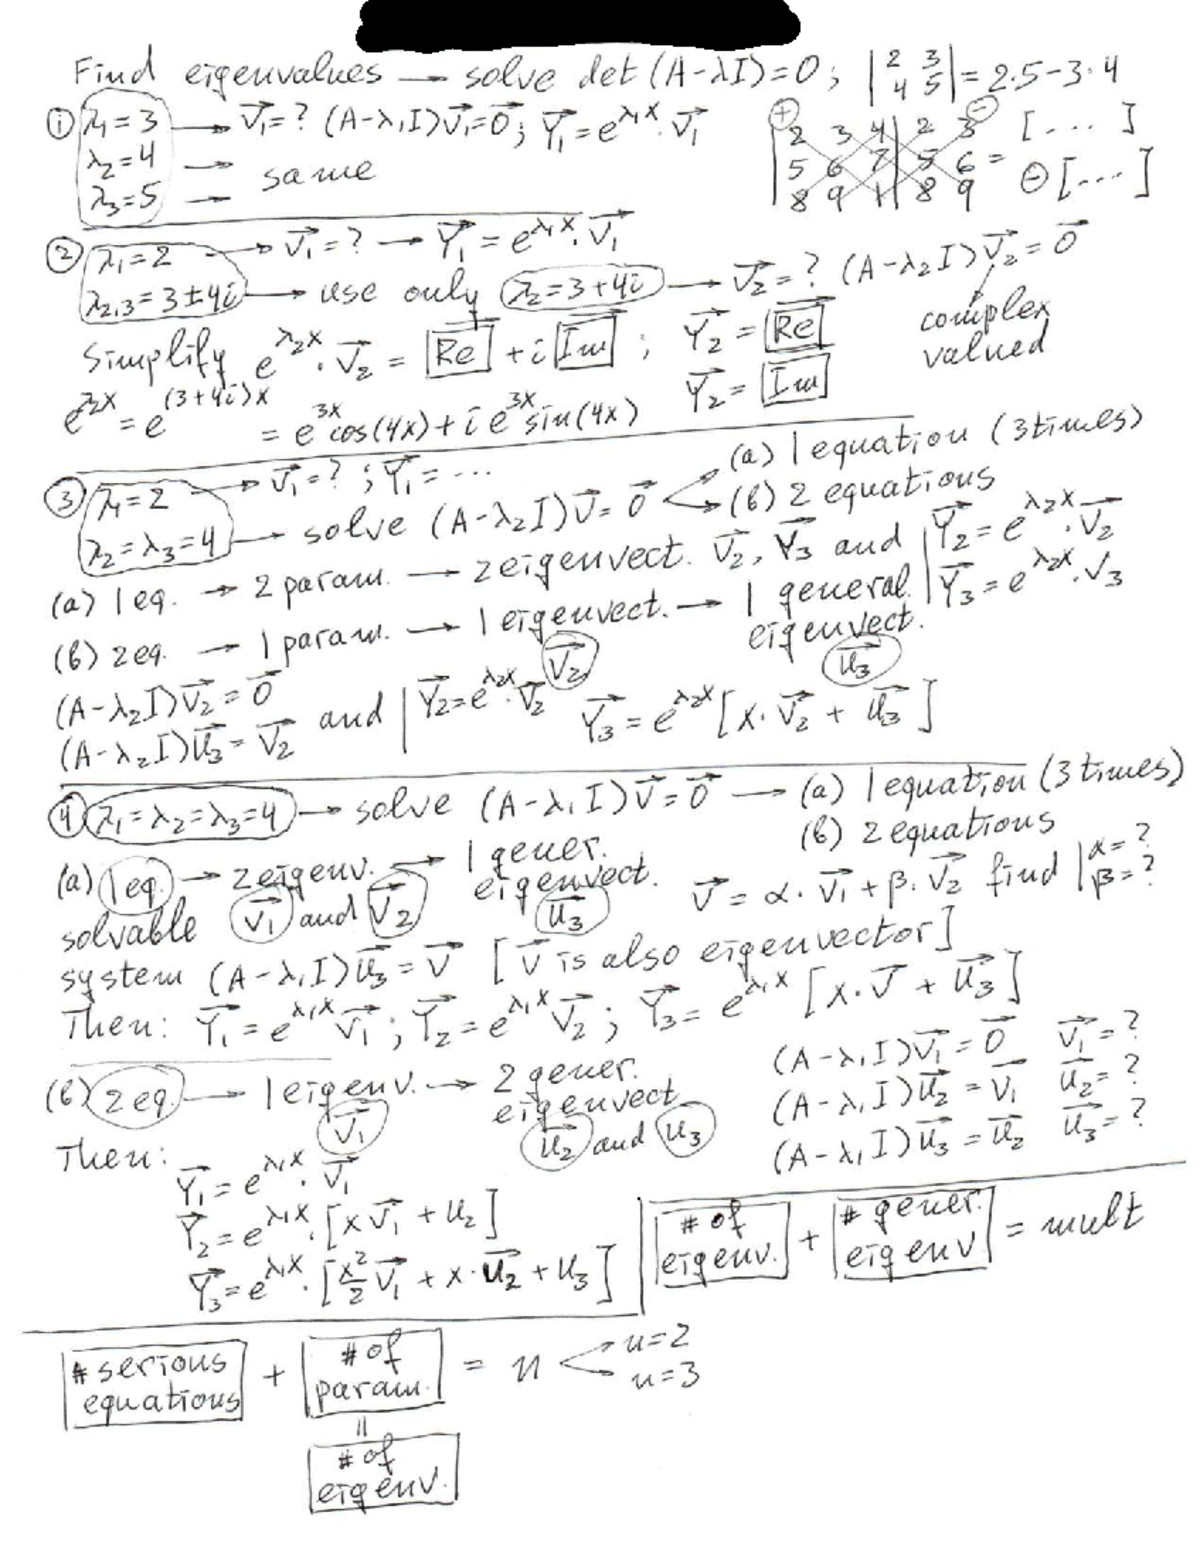 Find eigenvalues — solve det(A-λI)=0; |2 3 4 5| = 2·5-3·4
① λ₁=3 → V₁=? (A-λ₁I)V₁=0; Y₁=e^(λ₁x)·V₁
λ₂=4 →
λ₃=5 → same
⊕ ⊖
|2 3 4| 2 3 [....]
|5 6 7| 5 6 =
|8 9 1| 8 9 ⊖[....]
② λ₁=2 → V₁=? → Y₁=e^(λ₁x)·V₁
λ₂,₃=3±4i → use only λ₂=3+4i → V₂=? (A-λ₂I)V₂=0
complex valued
Simplify e^(λ₂x)·V₂ = Re + i Im; Y₂=Re
Y₂=Im
e^(λ₂x) = e^((3+4i)x) = e^(3x)cos(4x)+i e^(3x)sin(4x)
③ λ₁=2 → V₁=?; Y₁=...
λ₂=λ₃=4 → solve (A-λ₂I)V=0
(a) 1 equation (3 times)
(b) 2 equations
(a) 1 eq. → 2 param. → 2 eigenvect. V₂, V₃ and | Y₂=e^(λ₂x)·V₂
Y₃=e^(λ₂x)·V₃
(b) 2 eq. → 1 param. → 1 eigenvect. → 1 general. eigenvect.
V₂ u₃
(A-λ₂I)V₂=0
(A-λ₂I)u₃=V₂ and | Y₂=e^(λ₂x)·V₂ Y₃=e^(λ₂x)[x·V₂+u₃]
④ λ₁=λ₂=λ₃=4 → solve (A-λ₁I)V=0 → (a) 1 equation (3 times)
(b) 2 equations
(a) 1 eq. → 2 eigenv. → 1 gener. eigenvect.
V₁ and V₂ u₃
V=α·V₁+β·V₂ find | α=?
β=?
solvable
system (A-λ₁I)u₃=V [V is also eigenvector]
Then: Y₁=e^(λ₁x)V₁; Y₂=e^(λ₁x)V₂; Y₃=e^(λ₁x)[x·V+u₃]
(b) 2 eq. → 1 eigenv. → 2 gener. eigenvect.
V₁ u₂ and u₃
(A-λ₁I)V₁=0 V₁=?
(A-λ₁I)u₂=V₁ u₂=?
(A-λ₁I)u₃=u₂ u₃=?
Then:
Y₁=e^(λ₁x)·V₁
Y₂=e^(λ₁x)·[xV₁+u₂]
Y₃=e^(λ₁x)·[x²/2 V₁+x·u₂+u₃]
# of eigenv. + # gener. eigenv = mult
# serious equations + # of param. = n
n=2
n=3
=
# of eigenv.